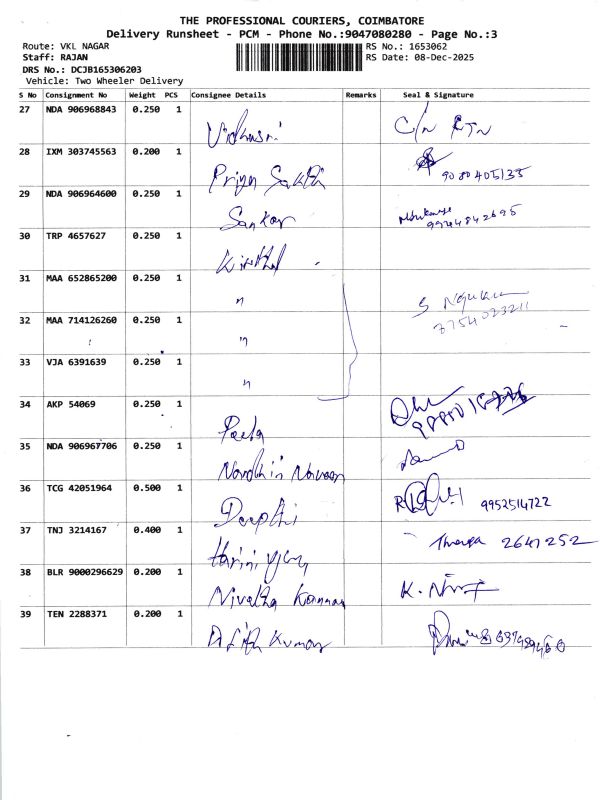 THE PROFESSIONAL COURIERS, COIMBATORE
Delivery Runsheet - PCM - Phone No.:9047080280 - Page No.:3
Route: VKL NAGAR RS No.: 1653062
Staff: RAJAN RS Date: 08-Dec-2025
DRS No.: DCJB165306203
Vehicle: Two Wheeler Delivery
S No Consignment No Weight PCS Consignee Details Remarks Seal & Signature
27 NDA 906968843 0.250 1
28 IXM 303745563 0.200 1 Priya Sakthi 9080405133
29 NDA 906964600 0.250 1 Sankar
30 TRP 4657627 0.250 1
31 MAA 652865200 0.250 1 "
32 MAA 714126260 0.250 1 "
33 VJA 6391639 0.250 1 "
34 AKP 54069 0.250 1
35 NDA 906967706 0.250 1 Naveen
36 TCG 42051964 0.500 1 Deepthi 9952514722
37 TNJ 3214167 0.400 1 Harini 2647252
38 BLR 9000296629 0.200 1 Nivetha Kannan
39 TEN 2288371 0.200 1 Kumar